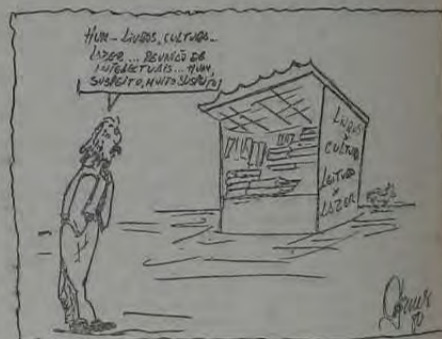 HUM - LIVROS, CULTURA...
LAZER ... REUNIÃO DE
INTELECTUAIS... HUM,
SUSPEITO, MUITO SUSPEITO
LIVROS
X
CULTURA
LEITURA
X
LAZER